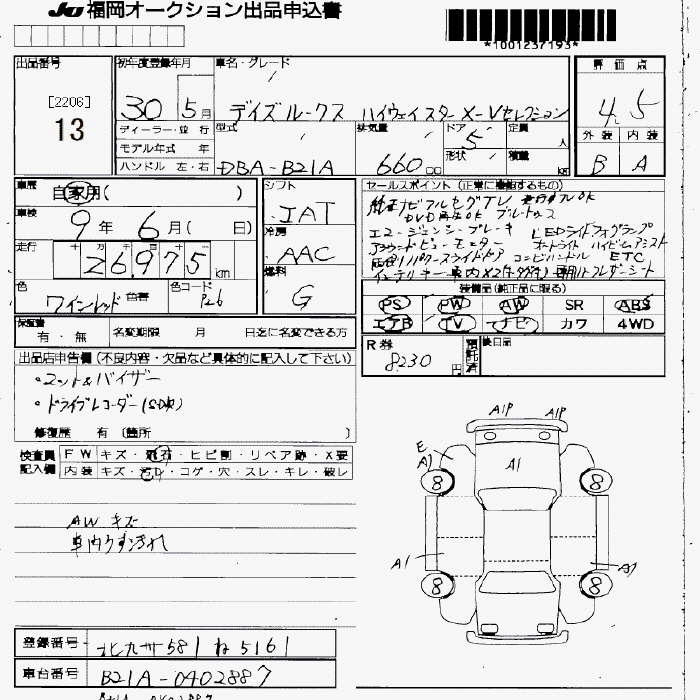 JU 福岡オークション出品申込書
*1001237193*
出品番号
[2206]
13
初年度登録年月
30 5月
車名・グレード
デイズルークス ハイウェイスターX-Vセレクション
ディーラー・並行
モデル年式 年
ハンドル 左・右
型式
DBA-B21A
排気量
660cc
ドア
5
形状
定員
人
積載
評価点
4.5
外装 内装
B A
車歴
自家用( )
車検
9年 6月( 日)
走行
十 万 千
26,975 km
色
ワインレッド 色替
色コード
シフト
IAT
冷房
AAC
燃料
G
セールスポイント (正常に機能するもの)
純正ナビ フルセグTV
DVD再生OK ブルートゥース
エマージェンシーブレーキ LEDライト フォグランプ
アラウンドビューモニター オートライト ハイビームアシスト
両側パワースライドドア コンビハンドル ETC
装備品(純正品に限る)
PS PW AW SR ABS
エアB TV ナビ カワ 4WD
保証書
有・無
名変期限 月 日迄に名変できる方
R券
8230円
預託済
後日品
出品店申告欄(不良内容・欠品など具体的に記入して下さい)
・マット&バイザー
・ドライブレコーダー(SD欠)
修復歴 有 〔箇所 〕
検査員記入欄
FW キズ・飛石・ヒビ割・リペア跡・X要
内装 キズ・汚レ・コゲ・穴・スレ・キレ・破レ
AW キズ
車内うす汚れ
A1P A1P
E
A1
A1
8 8
A1
A1
8 8
登録番号
北九州 581 ね 5161
車台番号
B21A-0402887